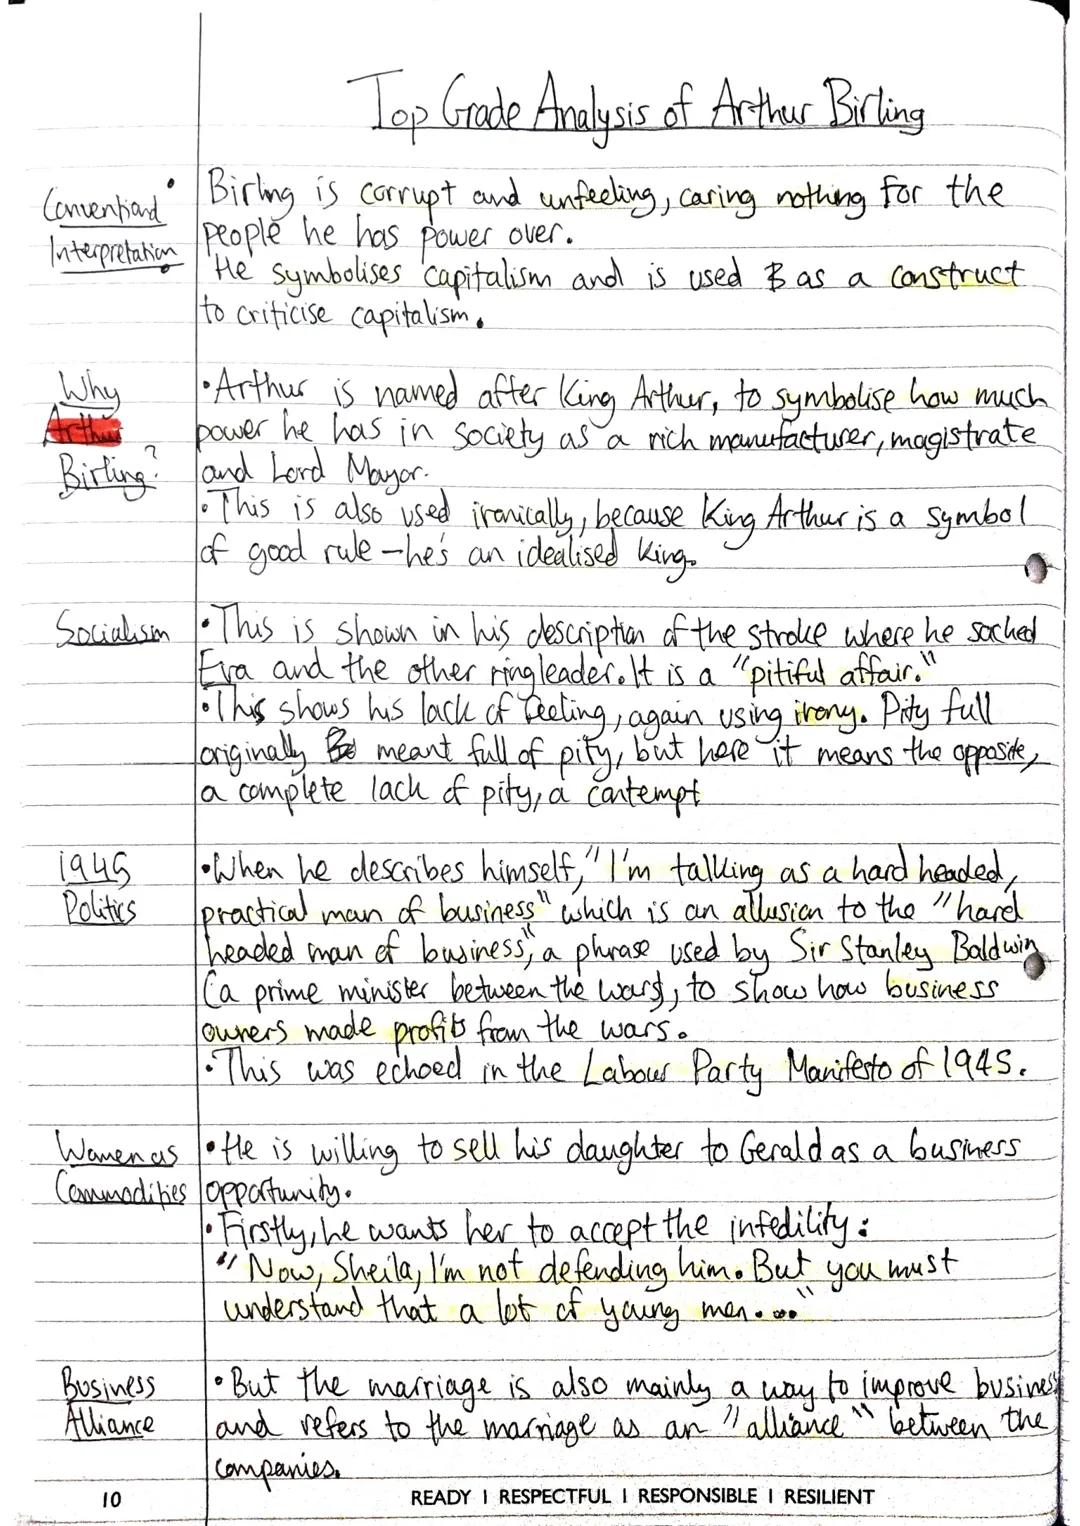 Top Grade Analysis of Arthur Birling
Conventional
Interpretation
• Birling is corrupt and unfeeling, caring nothing for the
people he has power over.
• He symbolises capitalism and is used as a construct
to criticise capitalism.
Why
Arthur
Birling?
• Arthur is named after King Arthur, to symbolise how much
power he has in society as a rich manufacturer, magistrate
and Lord Mayor.
• This is also used ironically, because King Arthur is a symbol
of good rule – he's an idealised king.
Socialism
• This is shown in his description of the stroke where he sacked
Eva and the other ringleader. It is a "pitiful affair."
• This shows his lack of feeling, again using irony. Pity full
originally meant full of pity, but here it means the opposite,
a complete lack of pity, a contempt
1945
Politics
• When he describes himself, "I'm talking as a hard headed,
practical man of business" which is an allusion to the "hard
headed man of business", a phrase used by Sir Stanley Baldwin
(a prime minister between the wars), to show how business
owners made profits from the wars.
• This was echoed in the Labour Party Manifesto of 1945.
Women as
Commodities
• He is willing to sell his daughter to Gerald as a business
opportunity.
• Firstly, he wants her to accept the infedility:
"Now, Sheila, I'm not defending him. But you must
understand that a lot of young men....."
Business
Alliance
• But the marriage is also mainly a way to improve business
and refers to the marriage as an "alliance" between the
companies.
10
READY | RESPECTFUL | RESPONSIBLE | RESILIENT